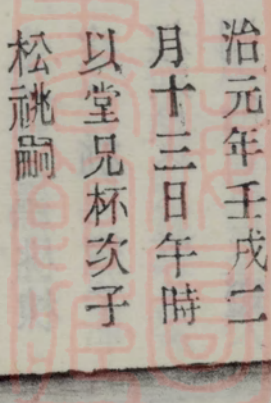 治元年壬戌二
月十三日午時
以堂兄杯次子
松祧嗣